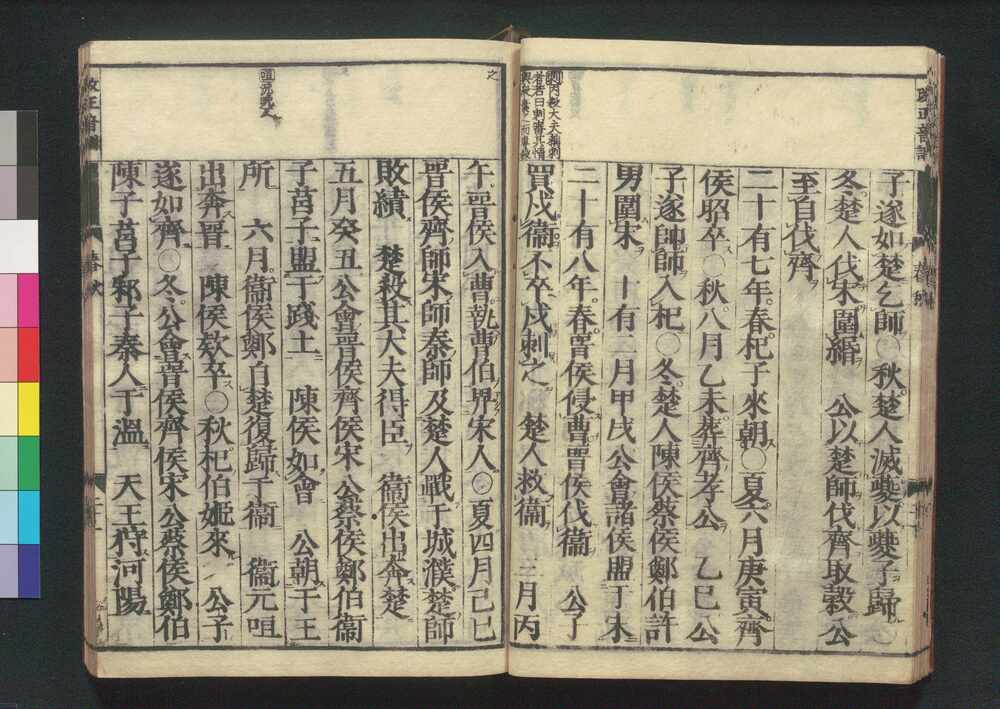 改正音訓
春秋
子遂如楚乞師○秋楚人滅夔以夔子歸
冬楚人伐宋圍緡　公以楚師伐齊取穀公
至自伐齊
二十有七年春杞子來朝○夏六月庚寅齊
侯昭卒○秋八月乙未葬齊孝公　乙巳公
子遂帥師入杞○冬楚人陳侯蔡侯鄭伯許
男圍宋　十有二月甲戌公會諸侯盟于宋
二十有八年春晉侯侵曹晉侯伐衞　公子
買戍衞不卒戍刺之　楚人救衞　三月丙
之
午晉侯入曹執曹伯畀宋人○夏四月己巳
晉侯齊師宋師秦師及楚人戰于城濮楚師
敗績　楚殺其大夫得臣　衞侯出奔楚
五月癸丑公會晉侯齊侯宋公蔡侯鄭伯衞
子莒子盟于踐土　陳侯如會　公朝于王
咺況晩反
所　六月衞侯鄭自楚復歸于衞　衞元咺
出奔晉　陳侯款卒○秋杞伯姬來　公子
遂如齊○冬公會晉侯齊侯宋公蔡侯鄭伯
陳子莒子邾子秦人于溫　天王狩河陽
改正音訓
春秋